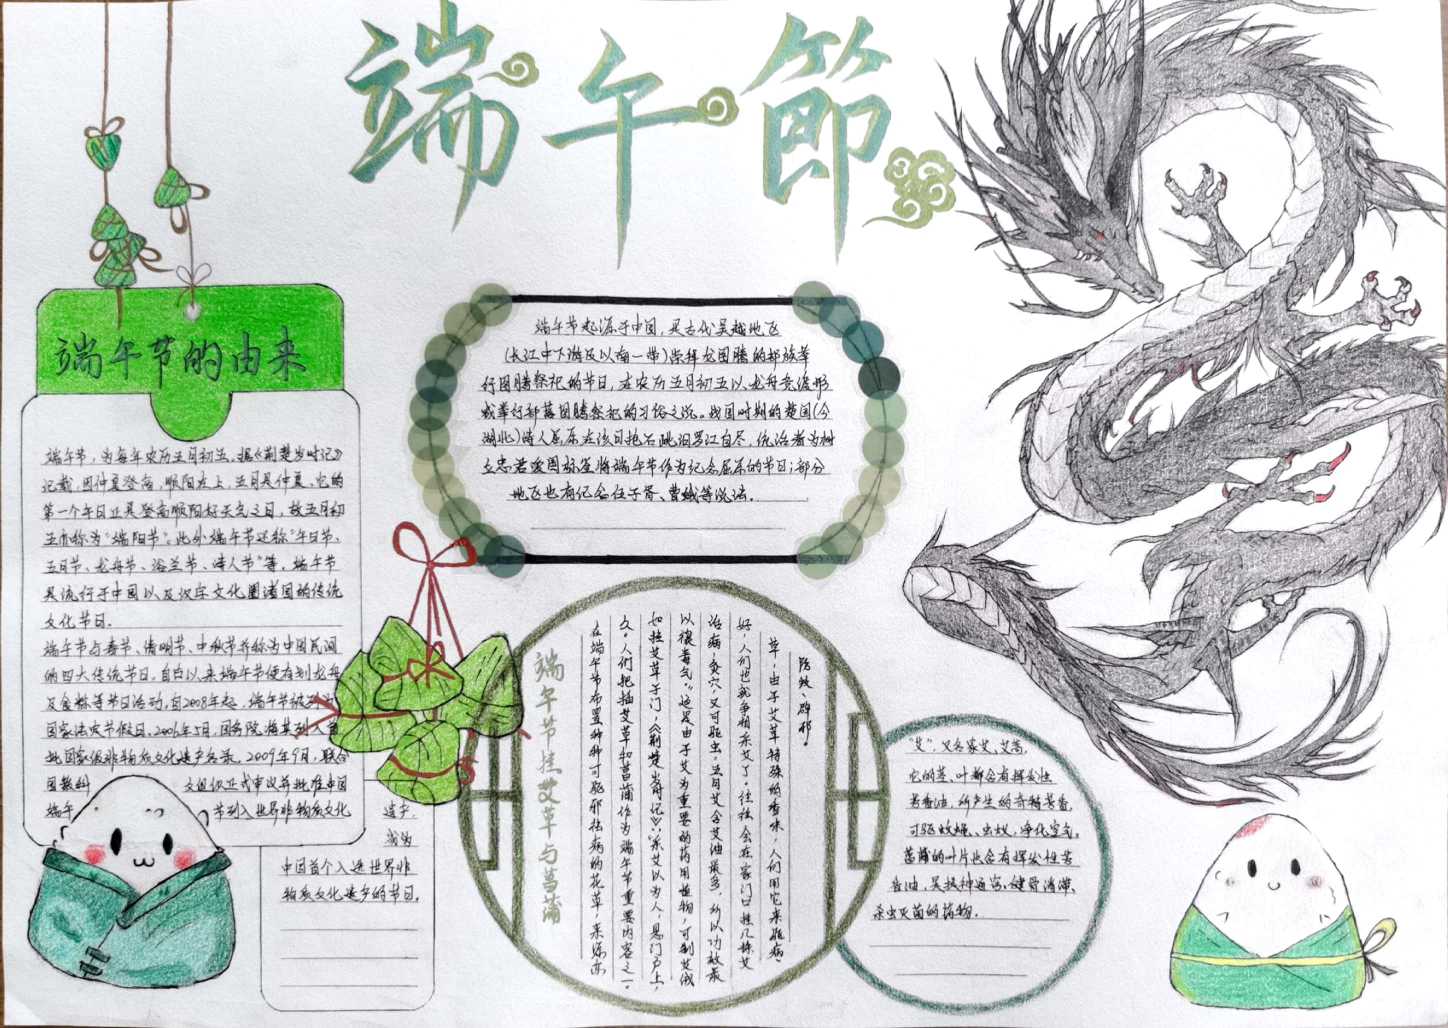 端午節
端午节的由来
端午节，为每年农历五月初五。据《荆楚岁时记》
记载，因仲夏登高，顺阳在上，五月是仲夏，它的
第一个午日正是登高顺阳好天气之日，故五月初
五亦称为“端阳节”。此外端午节还称“午日节、
五月节、龙舟节、浴兰节、诗人节”等，端午节
是流行于中国以及汉字文化圈诸国的传统
文化节日。
端午节与春节、清明节、中秋节并称为中国民间
的四大传统节日。自古以来端午节便有划龙舟
及食粽等节日活动，自2008年起，端午节被列为
国家法定节假日。2006年5月，国务院将其列入首
批国家级非物质文化遗产名录，2009年9月，联合
国教科 文组织正式审议并批准中国
端午 节列入世界非物质文化
遗产，
成为
中国首个入选世界非
物质文化遗产的节日。
端午节起源于中国，是古代吴越地区
（长江中下游及以南一带）崇拜龙图腾的部族举
行图腾祭祀的节日，在农历五月初五以龙舟竞渡形
式举行部落图腾祭祀的习俗之说。战国时期的楚国（今
湖北）诗人屈原在该日抱石跳汨罗江自尽，统治者为树
立忠君爱国标签将端午节作为纪念屈原的节日；部分
地区也有纪念伍子胥、曹娥等说法。
防蚊、辟邪！
草，由于艾草特殊的香味，人们用它来驱病、
好，人们也就争相采艾了，往往会在家门口挂几株艾
治病，灸穴，又可驱虫，五月艾含艾油最多，所以功效最
以禳毒气。”这是由于艾为重要的药用植物，可制艾绒
如挂艾草于门，《荆楚岁时记》：“采艾以为人，悬门户上，
久。人们把插艾草和菖蒲作为端午节重要内容之一。
在端午节布置种种可驱邪祛病的花草，来源亦
端午节挂艾草与菖蒲
“艾”，又名家艾、艾蒿，
它的茎、叶都含有挥发性
芳香油，所产生的奇特芳香，
可驱蚊蝇、虫蚁，净化空气。
菖蒲的叶片也含有挥发性芳
香油，是提神通窍、健骨消滞、
杀虫灭菌的药物。